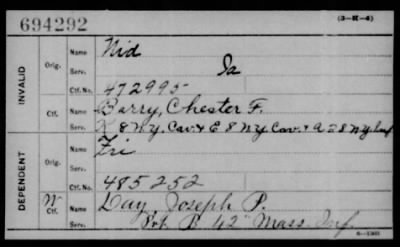 694292
(3-K-4)
INVALID
Orig.
Name Nid
Serv. Ia
Ctf. No. 472995
Ctf.
Name Barry, Chester F.
Serv. K 8 N.Y. Cav. & E 8 N.Y. Cav. &
DEPENDENT
Orig.
Name Fri
Serv.
Ctf. No. 485252
W
Ctf.
Name Day, Joseph P.
Serv. Pvt. B 42" Mass. Inf.
6-1961